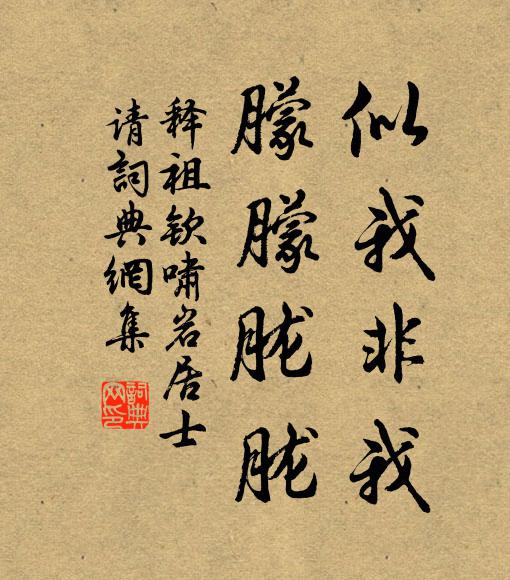 似我非我
朦朦胧胧
释祖钦啸岩居士
请詞典網集
詞典網印